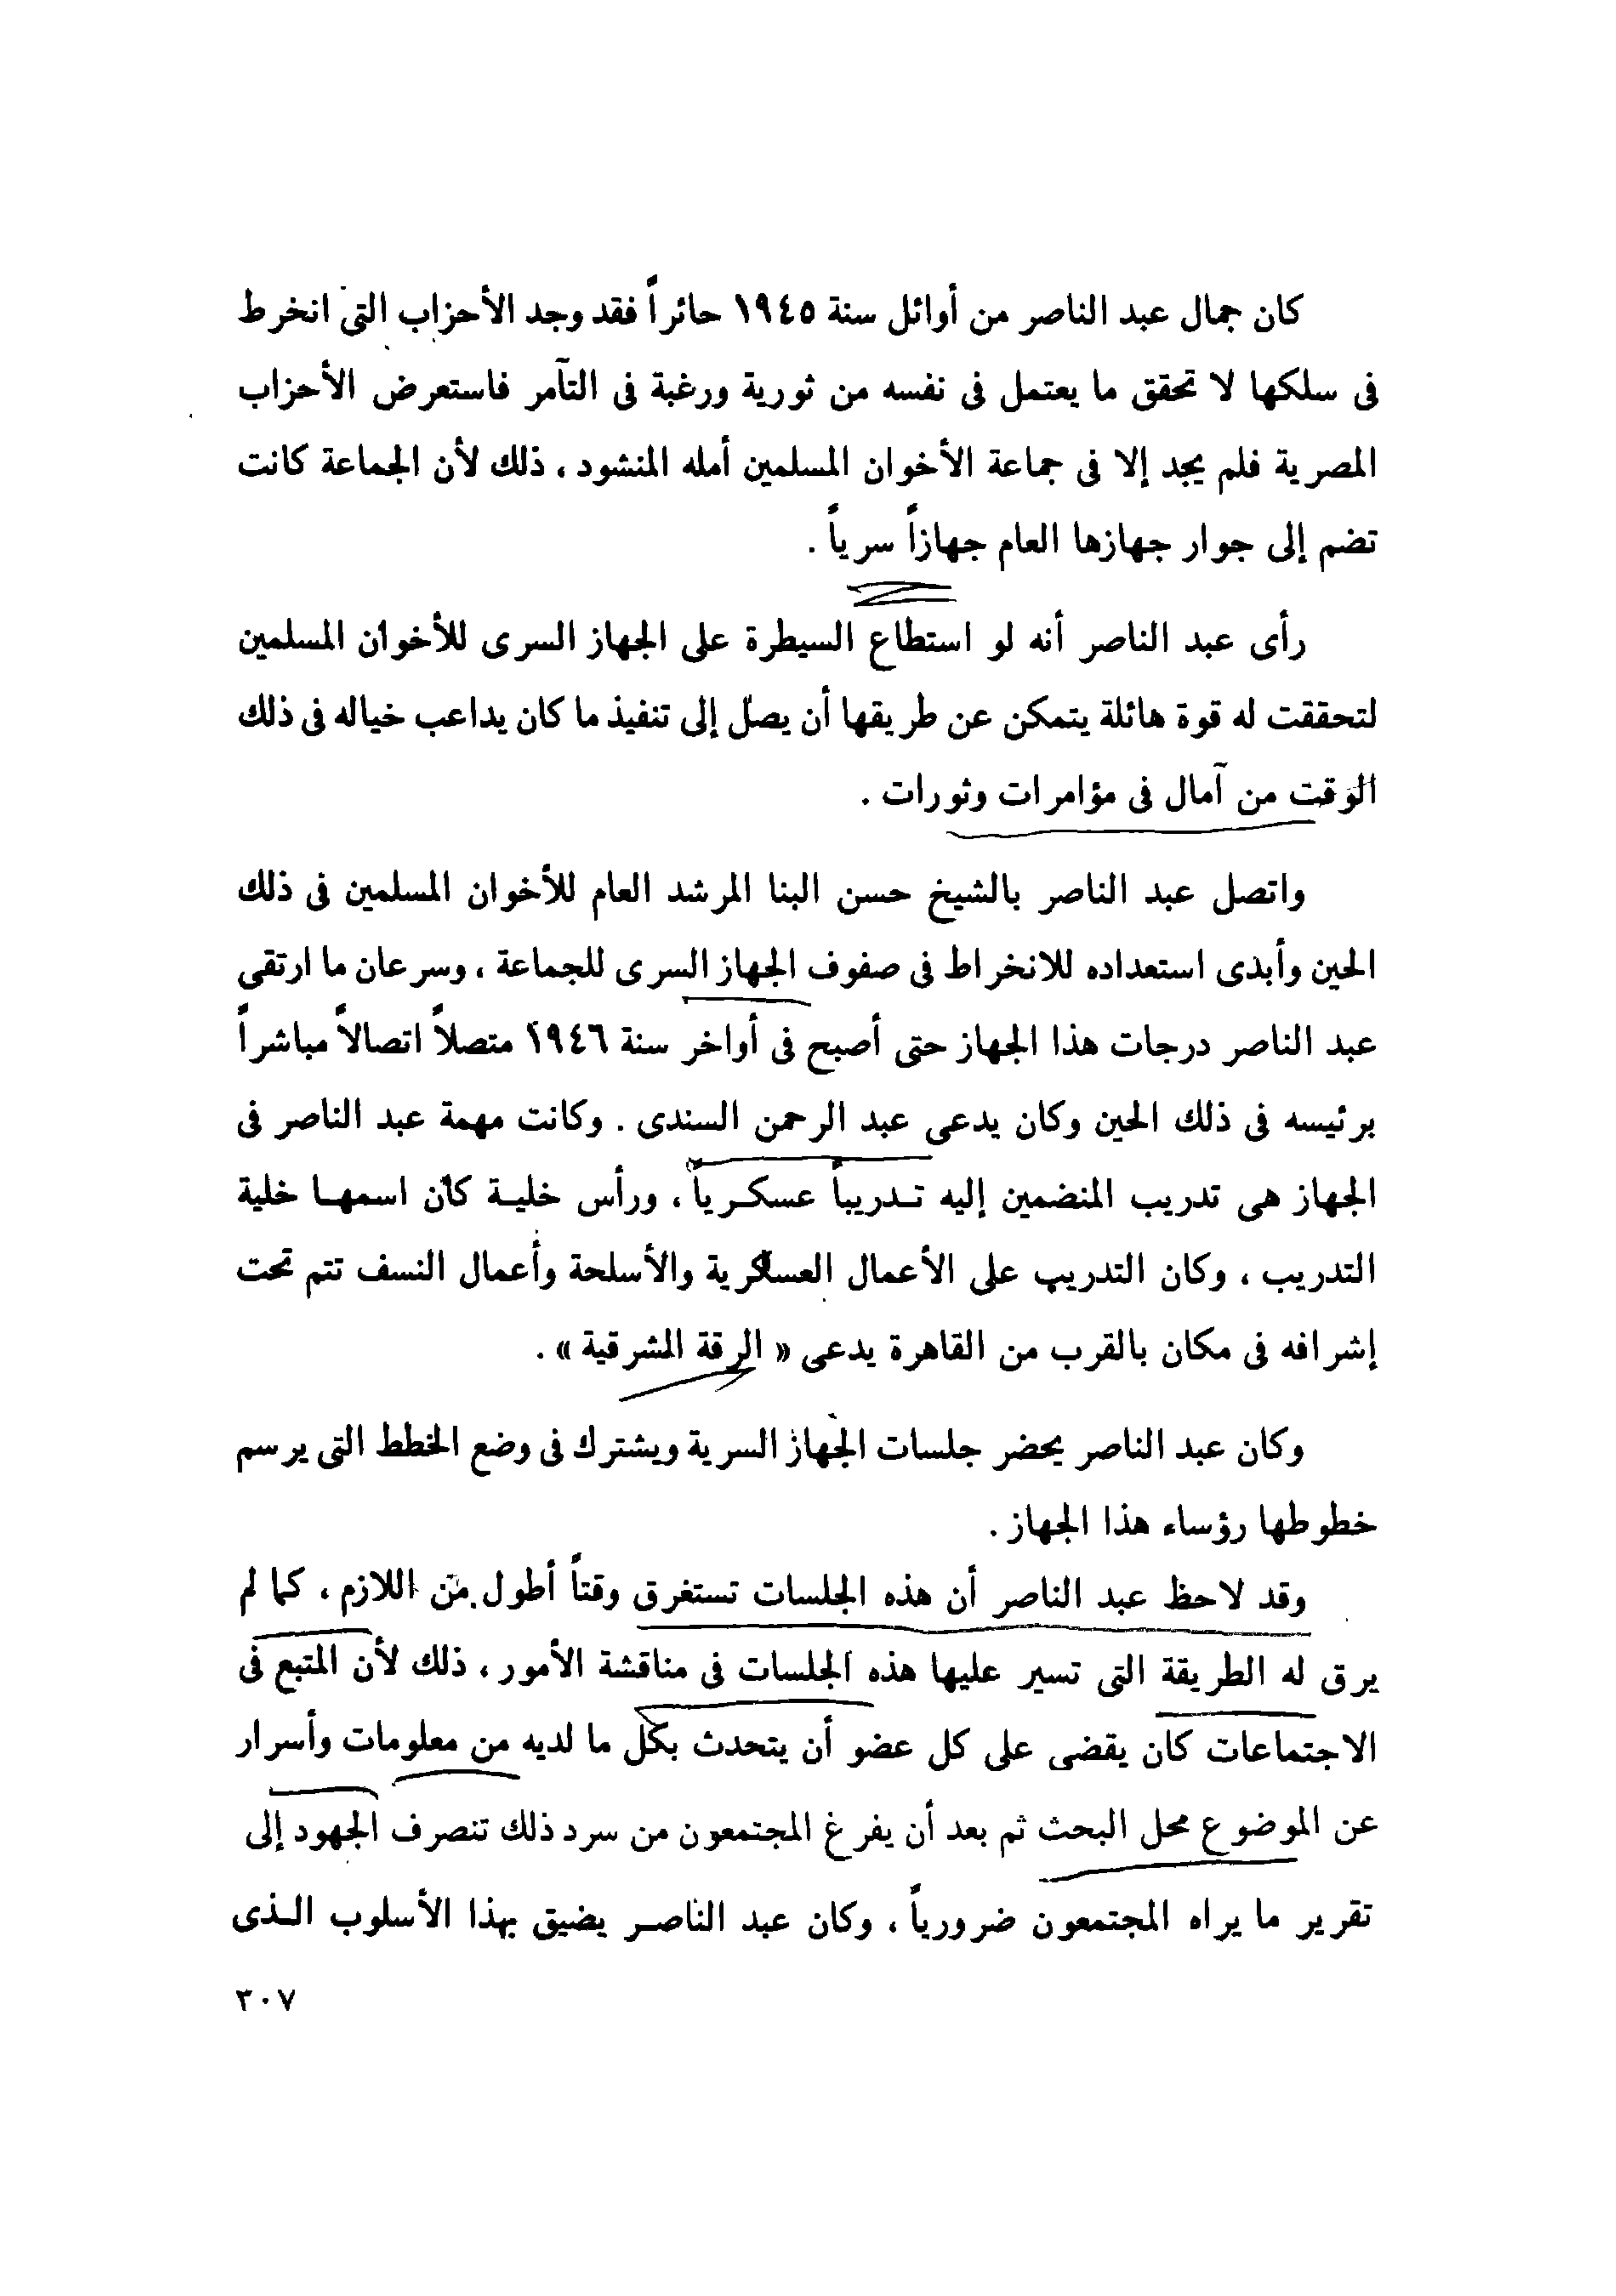 كان جمال عبد الناصر من أوائل سنة ١٩٤٥ حائراً فقد وجد الأحزاب التى انخرط
فى سلكها لا تحقق ما يعتمل فى نفسه من ثورية ورغبة فى التآمر فاستعرض الأحزاب
المصرية فلم يجد إلا فى جماعة الأخوان المسلمين أمله المنشود ، ذلك لأن الجماعة كانت
تضم إلى جوار جهازها العام جهازاً سرياً .
رأى عبد الناصر أنه لو استطاع السيطرة على الجهاز السرى للأخوان المسلمين
لتحققت له قوة هائلة يتمكن عن طريقها أن يصل إلى تنفيذ ما كان يداعب خياله فى ذلك
الوقت من آمال فى مؤامرات وثورات .
واتصل عبد الناصر بالشيخ حسن البنا المرشد العام للأخوان المسلمين فى ذلك
الحين وأبدى استعداده للانخراط فى صفوف الجهاز السرى للجماعة ، وسرعان ما ارتقى
عبد الناصر درجات هذا الجهاز حتى أصبح فى أواخر سنة ١٩٤٦ متصلاً اتصالاً مباشراً
برئيسه فى ذلك الحين وكان يدعى عبد الرحمن السندى . وكانت مهمة عبد الناصر فى
الجهاز هى تدريب المنضمين إليه تـدريباً عسكـرياً ، ورأس خليـة كان اسمهـا خلية
التدريب ، وكان التدريب على الأعمال العسكرية والأسلحة وأعمال النسف تتم تحت
إشرافه فى مكان بالقرب من القاهرة يدعى « الرقة المشرقية » .
وكان عبد الناصر يحضر جلسات الجهاز السرية ويشترك فى وضع الخطط التى يرسم
خطوطها رؤساء هذا الجهاز .
وقد لاحظ عبد الناصر أن هذه الجلسات تستغرق وقتاً أطول من اللازم ، كما لم
يرق له الطريقة التى تسير عليها هذه الجلسات فى مناقشة الأمور ، ذلك لأن المتبع فى
الاجتماعات كان يقضى على كل عضو أن يتحدث بكل ما لديه من معلومات وأسرار
عن الموضوع محل البحث ثم بعد أن يفرغ المجتمعون من سرد ذلك تنصرف الجهود إلى
تقرير ما يراه المجتمعون ضرورياً ، وكان عبد الناصـر يضيق بهذا الأسلوب الـذى
٣٠٧